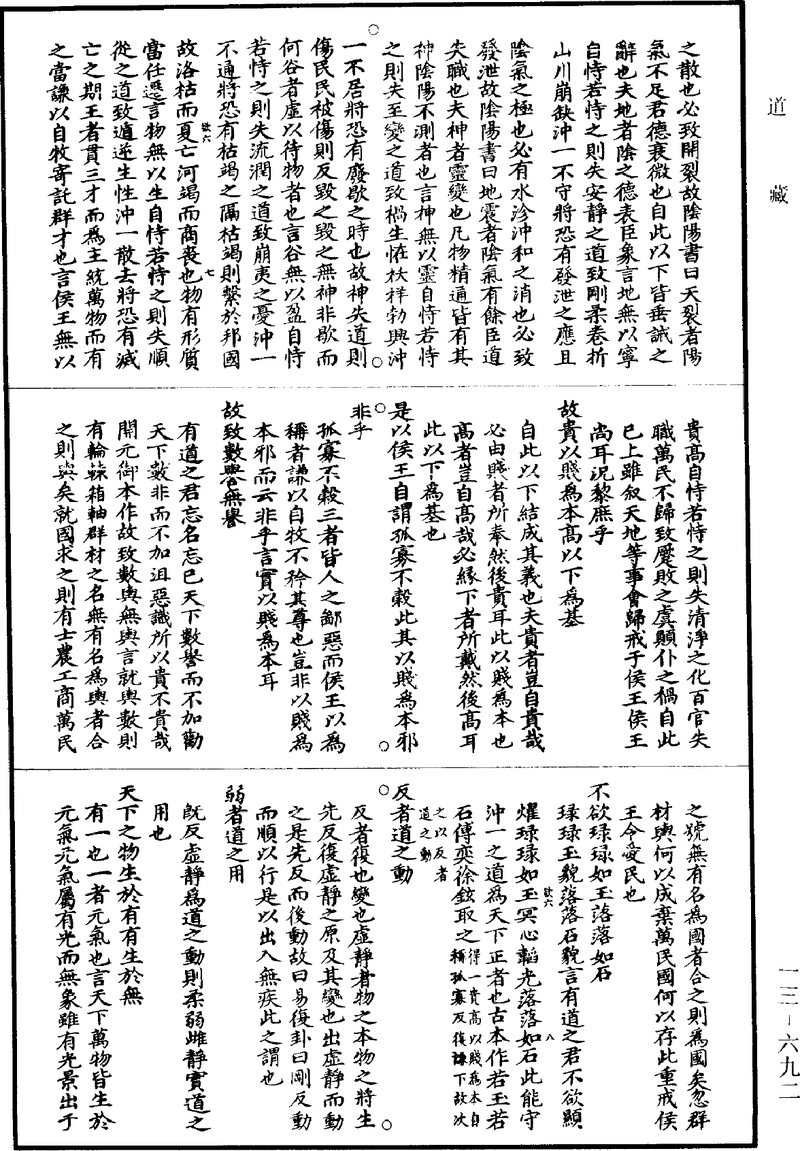 道藏
之散也必致開裂故陰陽書曰天裂者陽
氣不足君德衰微也自此以下皆垂誡之
辭也夫地者陰之德表臣象言地無以寧
自恃若恃之則失安靜之道致剛柔卷折
山川崩缺沖一不守將恐有發泄之應且
陰氣之極也必有水沴沖和之消也必致
發泄故陰陽書曰地震者陰氣有餘臣道
失職也夫神者靈變也凡物精通皆有其
神陰陽不測者也言神無以靈自恃若恃
之則失至變之道致禍生恠杖祥勃興沖
一不居將恐有廢歇之時也故神失道則
傷民民被傷則反毀之毀之無神非歇而
何谷者虛以待物者也言谷無以盈自恃
若恃之則失流潤之道致崩夷之憂沖一
不通將恐有枯竭之隔枯竭則繫於邦國
欲六
七
故洛枯而夏亡河竭而商喪也物有形質
當任遷言物無以生自恃若恃之則失順
從之道致遁逆生性沖一散去將恐有滅
亡之期王者貫三才而為主統萬物而有
之當謙以自牧寄託群才也言侯王無以
貴高自恃若恃之則失清淨之化百官失
職萬民不歸致麾敗之虞顛仆之禍自此
已上雖叙天地等事會歸戒于侯王侯王
尚耳況黎庶乎
故貴以賤為本高以下為基
自此以下結成其義也夫貴者豈自貴哉
必由賤者所奉然後貴耳此以賤為本也
高者豈自高哉必緣下者所戴然後高耳
此以下為基也
是以侯王自謂孤寡不穀此其以賤為本邪
非乎
孤寡不穀三者皆人之鄙惡而侯王以為
稱者謙以自牧不矜其尊也豈非以賤為
本邪而云非乎言實以賤為本耳
故致數譽無譽
有道之君忘名忘己天下數譽而不加勸
天下數非而不加沮惡識所以貴不貴哉
開元御本作故致數輿無輿言就輿數則
有輪轅箱軸群材之名無有名為輿者合
之則輿矣就國求之則有士農工商萬民
之號無有名為國者合之則為國矣忽群
材輿何以成棄萬民國何以存此重戒侯
王令愛民也
不欲琭琭如玉落落如石
琭琭玉貌落落石貌言有道之君不欲顯
欲六
八
燿琭琭如玉冥心韜光落落如石此能守
沖一之道為天下正者也古本作若玉若
石傅奕徐鉉取之得一貴高以賤為本自稱孤寡反復謙下故次
之以反者道之動
反者道之動
反者復也變也虛靜者物之本物之將生
先反復虛靜之原及其變也出虛靜而動
之是先反而後動故曰易復卦曰剛反動
而順以行是以出入無疾此之謂也
弱者道之用
既反虛靜為道之動則柔弱雌靜實道之
用也
天下之物生於有有生於無
有一也一者元氣也言天下萬物皆生於
元氣元氣屬有光而無象雖有光景出于
一三－六九二